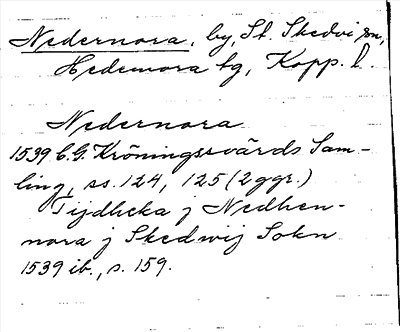 Nedernora, by, St. Skedvi sn,
Hedemora tg, Kopp. l.
Nedernora
1539 C.G. Kröningssvärds Sam-
ling, ss. 124, 125 (2 ggr.)
Tijdhcka j Nedhen-
nora j Skedwij Sokn
1539 ib., s. 159.